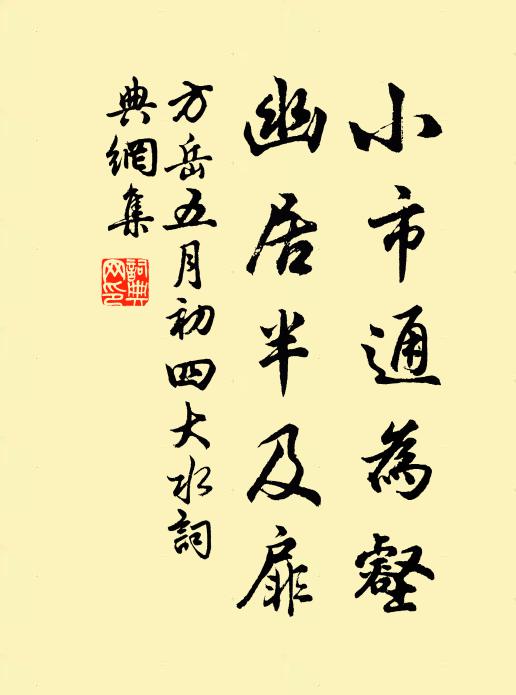 小市通為壑
幽居半及扉
方岳五月初四大水詞
典網集
詞典
网印